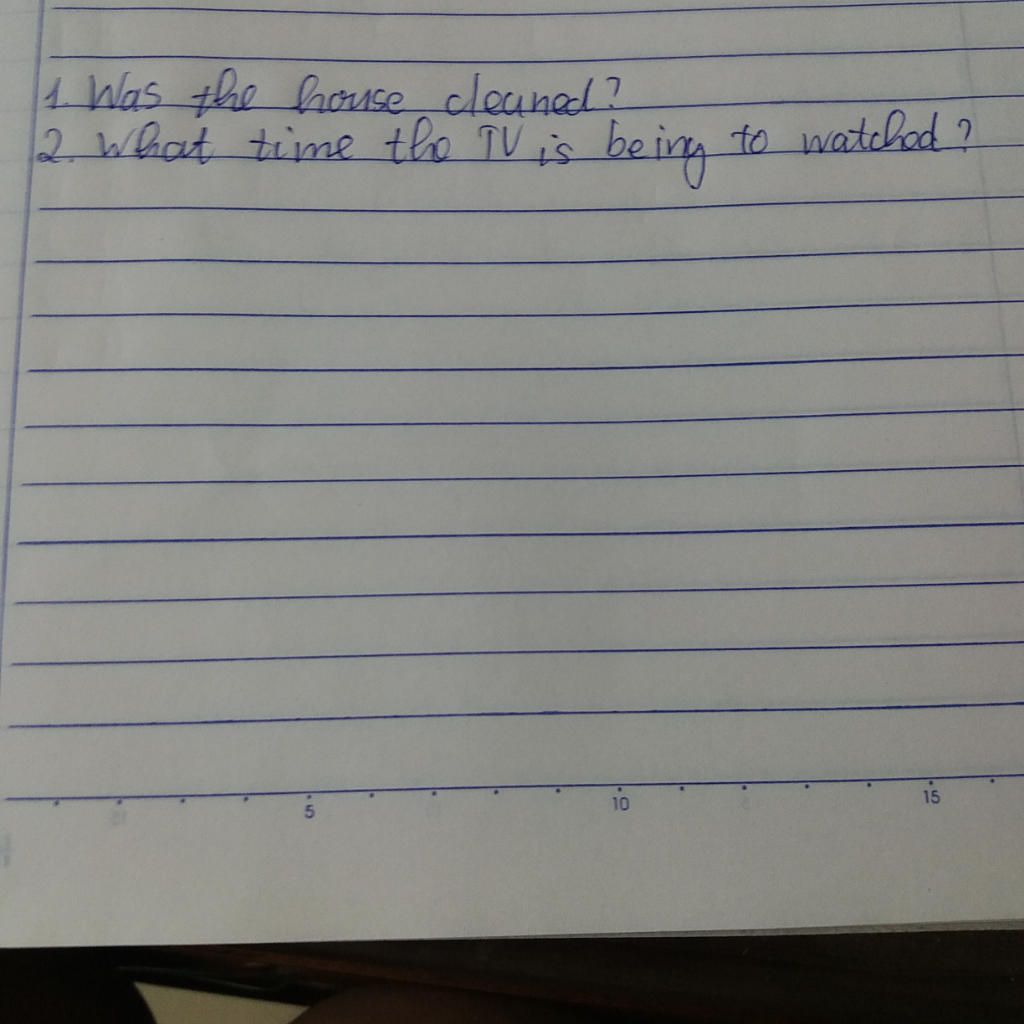 1. Was the house cleaned?
2. What time the TV is being to watched?
5 10 15